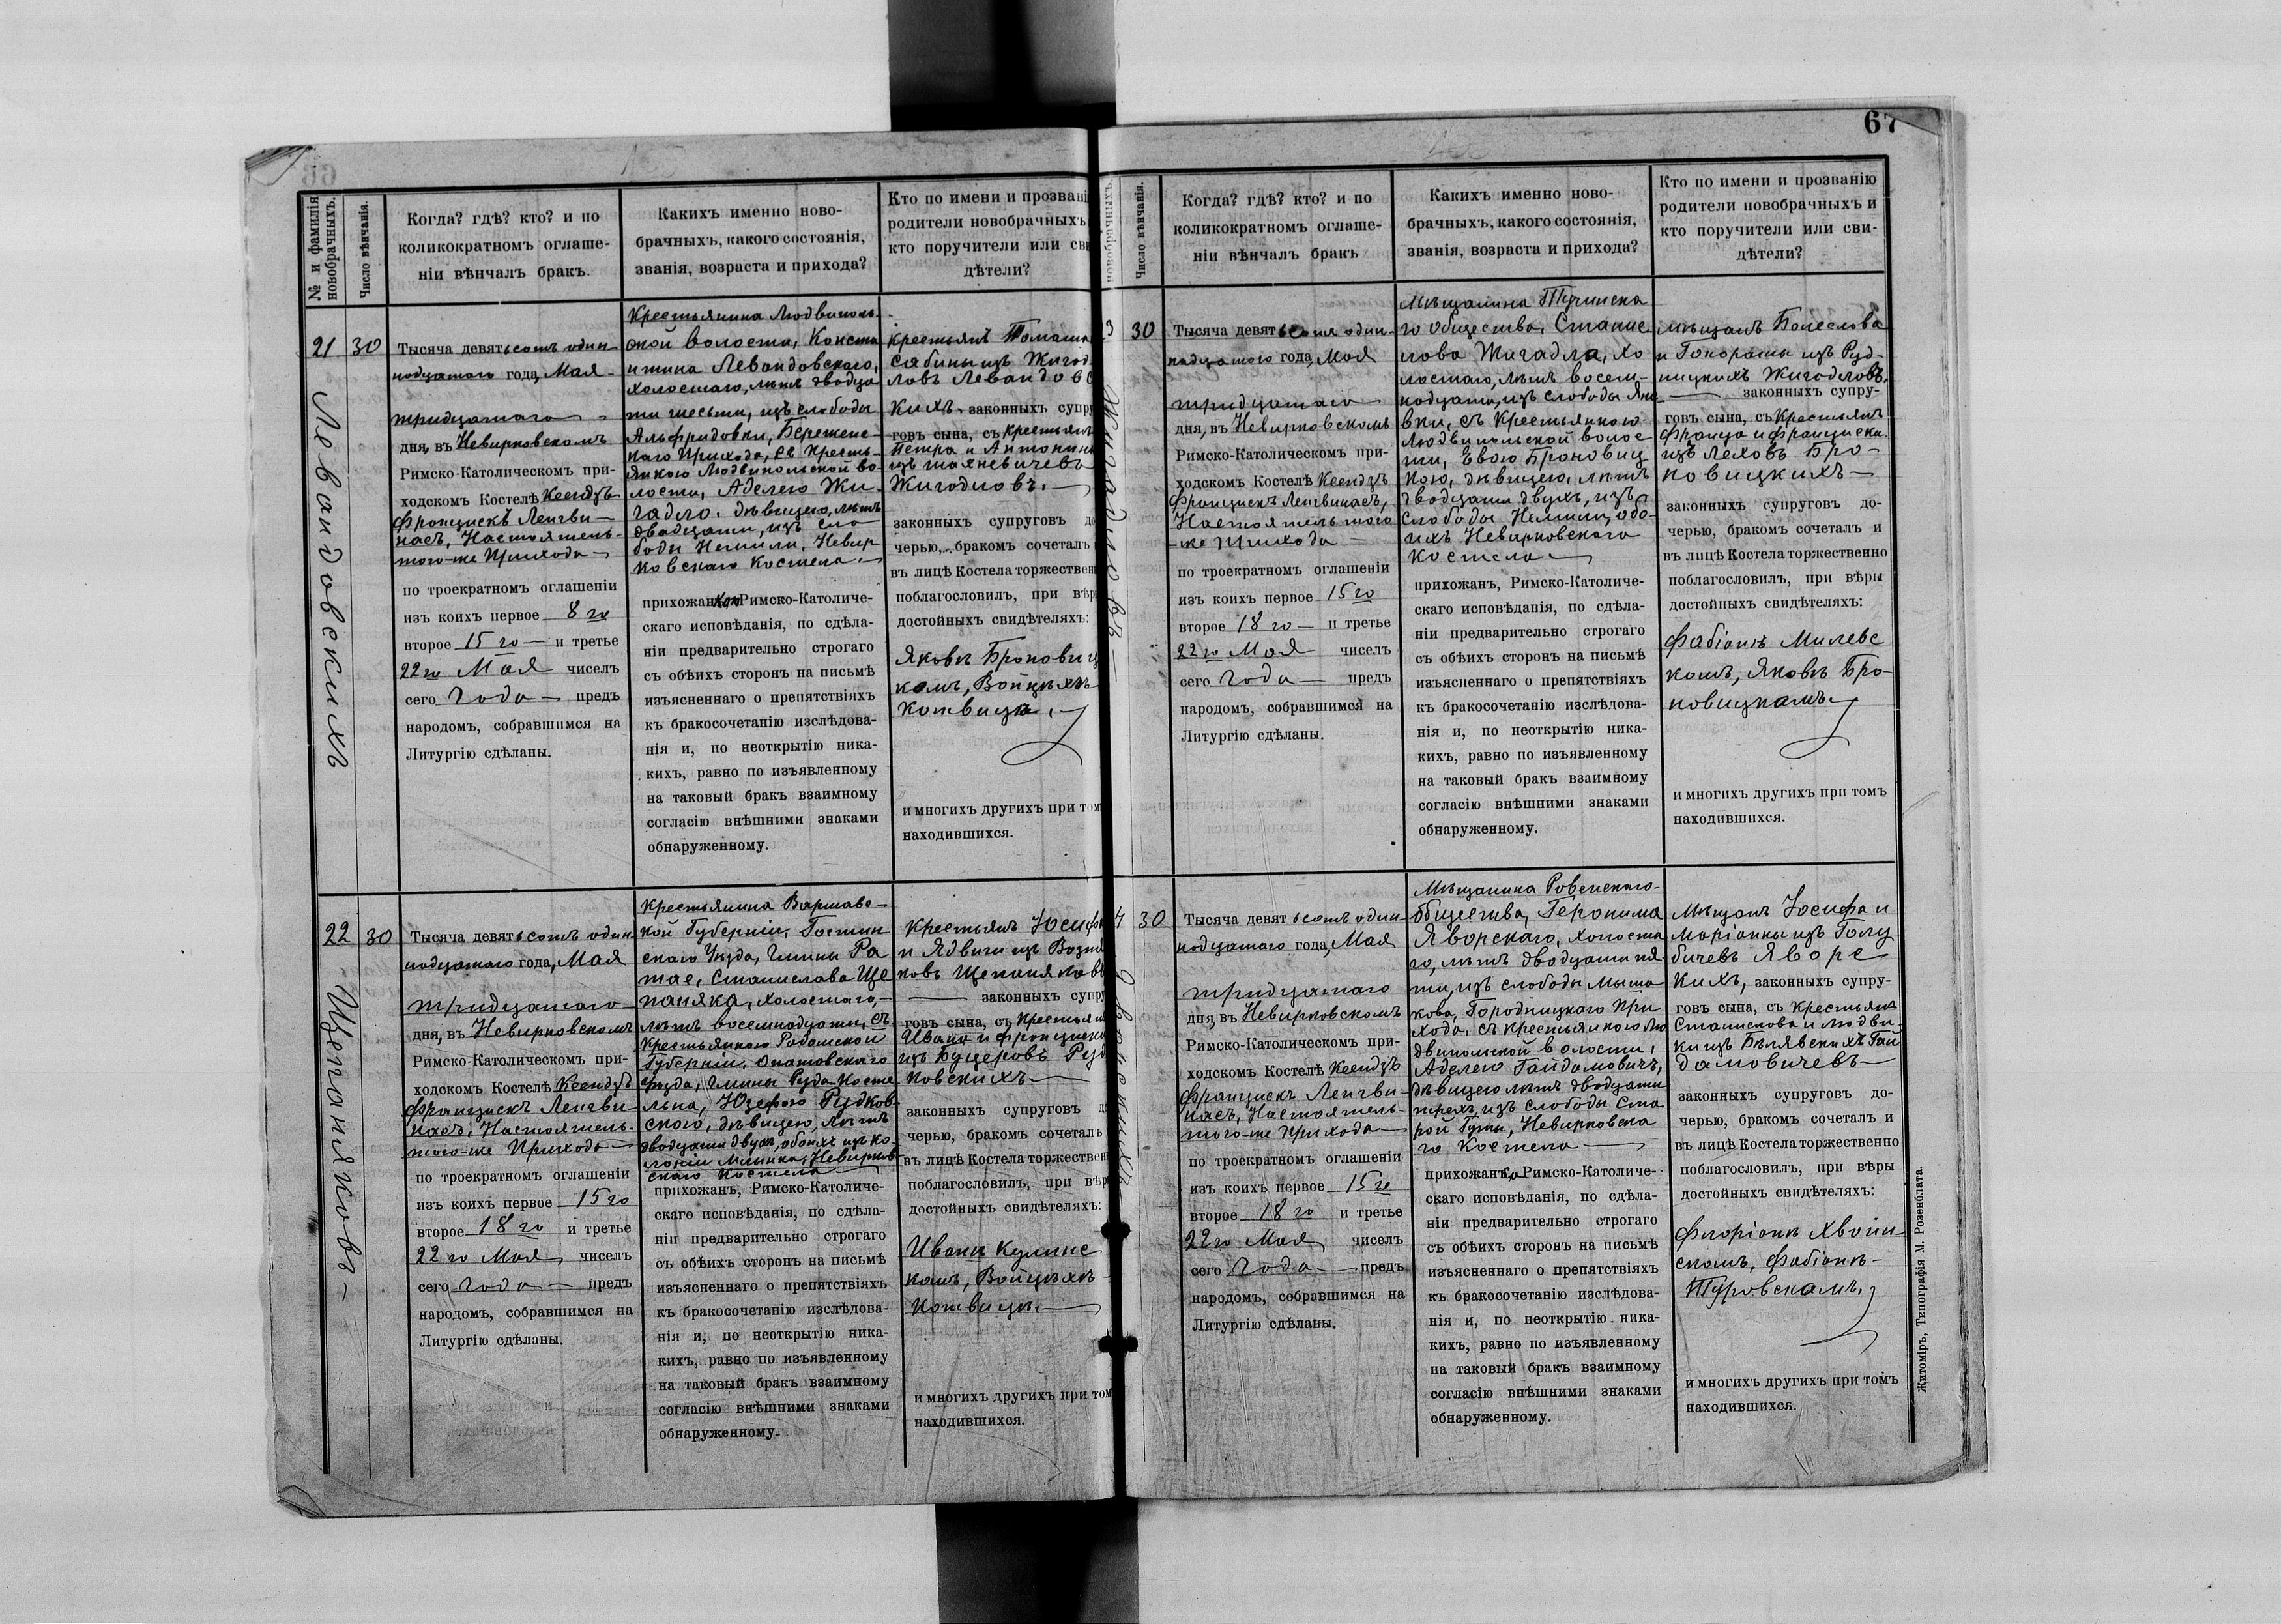 67
№ и фамилія новобрачныхъ.
Число вѣнчанія.
Когда? гдѣ? кто? и по
коликократномъ оглаше-
ніи вѣнчалъ бракъ.
Какихъ именно ново-
брачныхъ, какого состоянія,
званія, возраста и прихода?
Кто по имени и прозвані
родители новобрачныхъ
кто поручители или сви
дѣтели?
21
30
Левандовскихъ
Тысяча девятьсотъ один-
надцатаго года, Мая
тридцатаго
дня, въ Невирковскомъ
Римско-Католическомъ при-
ходскомъ Костелѣ Ксендзъ
Францискъ Ленгви-
насъ, Настоятель
того-же Прихода
по троекратномъ оглашеніи
изъ коихъ первое 8 го
второе 15 го и третье
22 го Мая чиселъ
сего года предъ
народомъ, собравшимся на
Литургію сдѣланы.
Крестьянина Людвиполь-
ской волости, Конста
нтина Левандовскаго,
холостаго, лѣтъ двадца
ти шести, изъ слободы
Альфридовки, Бережнс-
каго Прихода, съ Кресть-
янкою Людвипольской во-
лости, Аделею Жи
гадло, дѣвицею, лѣтъ
двадцати, изъ сло
боды Немили, Невир
ковскаго Костела
прихожан Римско-Католиче-
скаго исповѣданія, по сдѣла-
ніи предварительно строгаго
съ обѣихъ сторонъ на письмѣ
изъясненнаго о препятствіяхъ
къ бракосочетанію изслѣдова-
нія и, по неоткрытію ника-
кихъ, равно по изъявленному
на таковый бракъ взаимному
согласію внѣшними знаками
обнаруженному.
крестьянъ Томаша
Сабины изъ Жигад
ловъ Левандовс
кихъ, законныхъ супру
говъ сына, съ крестьянъ
Петра и Антонины
изъ Махневичевъ
Жигодловъ.
законныхъ супруговъ до
черью, бракомъ сочеталъ
въ лицѣ Костела торжествен
поблагословилъ, при вѣр
достойныхъ свидѣтеляхъ:
Яковѣ Броновиц
комъ, Войцѣхѣ
Котвицѣ.
и многихъ другихъ при том
находившихся.
22
30
Щепаняковъ
Тысяча девятьсотъ один-
надцатаго года, Мая
тридцатаго
дня, въ Невирковскомъ
Римско-Католическомъ при-
ходскомъ Костелѣ Ксендзъ
Францискъ Ленгви-
насъ, Настоятель
того-же Прихода
по троекратномъ оглашеніи
изъ коихъ первое 15 го
второе 18 го и третье
22 го Мая чиселъ
сего года предъ
народомъ, собравшимся на
Литургію сдѣланы.
Крестьянина Варшавс-
кой Губерніи, Гостин
скаго Уѣзда, Гмины Ра
тае, Станислава Ще
паняка, холостаго,
лѣтъ восемнадцати, съ
Крестьянкою Радомской
Губерніи, Опатовскаго
Уѣзда, Гмины Руда-Косте
льна, Юзефою Рудков-
скою, дѣвицею, лѣтъ
двадцати двухъ, обоихъ изъ ко-
лоніи Млынка, Невирков-
скаго Костела
прихожанъ, Римско-Католиче-
скаго исповѣданія, по сдѣла-
ніи предварительно строгаго
съ обѣихъ сторонъ на письмѣ
изъясненнаго о препятствіяхъ
къ бракосочетанію изслѣдова-
нія и, по неоткрытію ника-
кихъ, равно по изъявленному
на таковый бракъ взаимному
согласію внѣшними знаками
обнаруженному.
Крестьянъ Іосифа
и Ядвиги изъ Возня
ковъ Щепаняковъ
законныхъ супру
говъ сына, съ Крестьян
Ивана и Франциски
изъ Буцеровъ Руд
ковскихъ
законныхъ супруговъ до
черью, бракомъ сочеталъ
въ лицѣ Костела торжествен
поблагословилъ, при вѣр
достойныхъ свидѣтеляхъ:
Иванѣ Кулинс
комъ, Войцѣхѣ
Котвицѣ.
и многихъ другихъ при том
находившихся.
новобрачныхъ.
Число вѣнчанія.
Когда? гдѣ? кто? и по
коликократномъ оглаше-
ніи вѣнчалъ бракъ
Какихъ именно ново-
брачныхъ, какого состоянія,
званія, возраста и прихода?
Кто по имени и прозванію
родители новобрачныхъ и
кто поручители или сви-
дѣтели?
3
30
Жигадловъ
Тысяча девятьсотъ один-
надцатаго года, Мая
тридцатаго
дня, въ Невирковскомъ
Римско-Католическомъ при-
ходскомъ Костелѣ Ксендзъ
Францискъ Ленгвинасъ,
Настоятель того
-же Прихода
по троекратномъ оглашеніи
изъ коихъ первое 15 го
второе 18 го и третье
22 го Мая чиселъ
сего года предъ
народомъ, собравшимся на
Литургію сдѣланы.
Мѣщанина Тучинска
го общества, Станис
лава Жигадла, хо
лостаго, лѣтъ восем-
надцати, изъ слободы Яно
вки, съ Крестьянкою
Людвипольской волос
ти, Евою Броновиц
кою, дѣвицею, лѣтъ
двадцати двухъ, изъ
слободы Немили, обо-
ихъ Невирковскаго
Костела
прихожанъ, Римско-Католиче-
скаго исповѣданія, по сдѣла-
ніи предварительно строгаго
съ обѣихъ сторонъ на письмѣ
изъясненнаго о препятствіяхъ
къ бракосочетанію изслѣдова-
нія и, по неоткрытію ника-
кихъ, равно по изъявленному
на таковый бракъ взаимному
согласію внѣшними знаками
обнаруженному.
мѣщанъ Болеслава
и Гонораты изъ Руд-
ницкихъ Жигодловъ,
законныхъ супру-
говъ сына, съ Крестьянъ
Франца и Франциски
изъ Леховъ Бро-
новицкихъ
законныхъ супруговъ до-
черью, бракомъ сочеталъ и
въ лицѣ Костела торжественно
поблагословилъ, при вѣры
достойныхъ свидѣтеляхъ:
Фабіанѣ Милевс
комъ, Яковѣ Бро
новицкомъ
и многихъ другихъ при томъ
находившихся.
4
30
Яворскихъ
Тысяча девятьсотъ один-
надцатаго года, Мая
тридцатаго
дня, въ Невирковскомъ
Римско-Католическомъ при-
ходскомъ Костелѣ Ксендзъ
Францискъ Ленгви-
насъ, Настоятель
того-же Прихода
по троекратномъ оглашеніи
изъ коихъ первое 15 го
второе 18 го и третье
22 го Мая чиселъ
сего года предъ
народомъ, собравшимся на
Литургію сдѣланы.
Мѣщанина Ровенскаго
общества, Геронима
Яворскаго, холоста
го, лѣтъ двадцати пя-
ти, изъ слободы Мыша
кова, Городницкаго При
хода, съ крестьянкою Лю
двипольской волости,
Аделею Гайдамовичъ,
дѣвицею лѣтъ двадцати
трехъ, изъ слободы Ста
рой Гуты, Невирковска
го Костела
прихожан Римско-Католиче-
скаго исповѣданія, по сдѣла-
ніи предварительно строгаго
съ обѣихъ сторонъ на письмѣ
изъясненнаго о препятствіяхъ
къ бракосочетанію изслѣдова-
нія и, по неоткрытію ника-
кихъ, равно по изъявленному
на таковый бракъ взаимному
согласію внѣшними знаками
обнаруженному.
Мѣщанъ Іосифа и
Маріанны изъ Голу
бичевъ Яворс
кихъ, законныхъ супру-
говъ сына, съ Крестьянъ
Станислава и Людви
ки изъ Бѣлявскихъ Гай
дамовичевъ
законныхъ супруговъ до-
черью, бракомъ сочеталъ и
въ лицѣ Костела торжественно
поблагословилъ, при вѣры
достойныхъ свидѣтеляхъ:
Флоріанѣ Хвоин-
скомъ, Фабіанѣ
Туровскомъ.
и многихъ другихъ при томъ
находившихся.
Житоміръ, Типографія М. Розенблата.